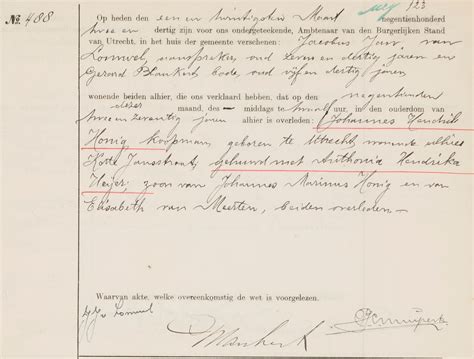 123
№. 488
Op heden een en twintigsten Maart negentienhonderd
twee en dertig zijn voor ons ondergeteekende, Ambtenaar van den Burgerlijken Stand
van Utrecht, in het huis der gemeente verschenen: Jacobus Jan van
Lommel, aanspreker, oud zeven en dertig jaren en
Gerard Blankert, bode, oud vijf en dertig jaren
wonende beiden alhier, die ons verklaard hebben, dat op den negentienden
dezer maand, des middags te twaalf uur, in den ouderdom van
twee en zeventig jaren alhier is overleden: Johannes Hendrik
Honig, koopman, geboren te Utrecht, wonende alhier
Korte Jansstraat, gehuwd met Anthonia Hendrika
Meijer, zoon van Johannes Marinus Honig en van
Elisabeth van Meerten, beiden overleden
Waarvan akte, welke overeenkomstig de wet is voorgelezen.
JJ v Lommel
Blankert